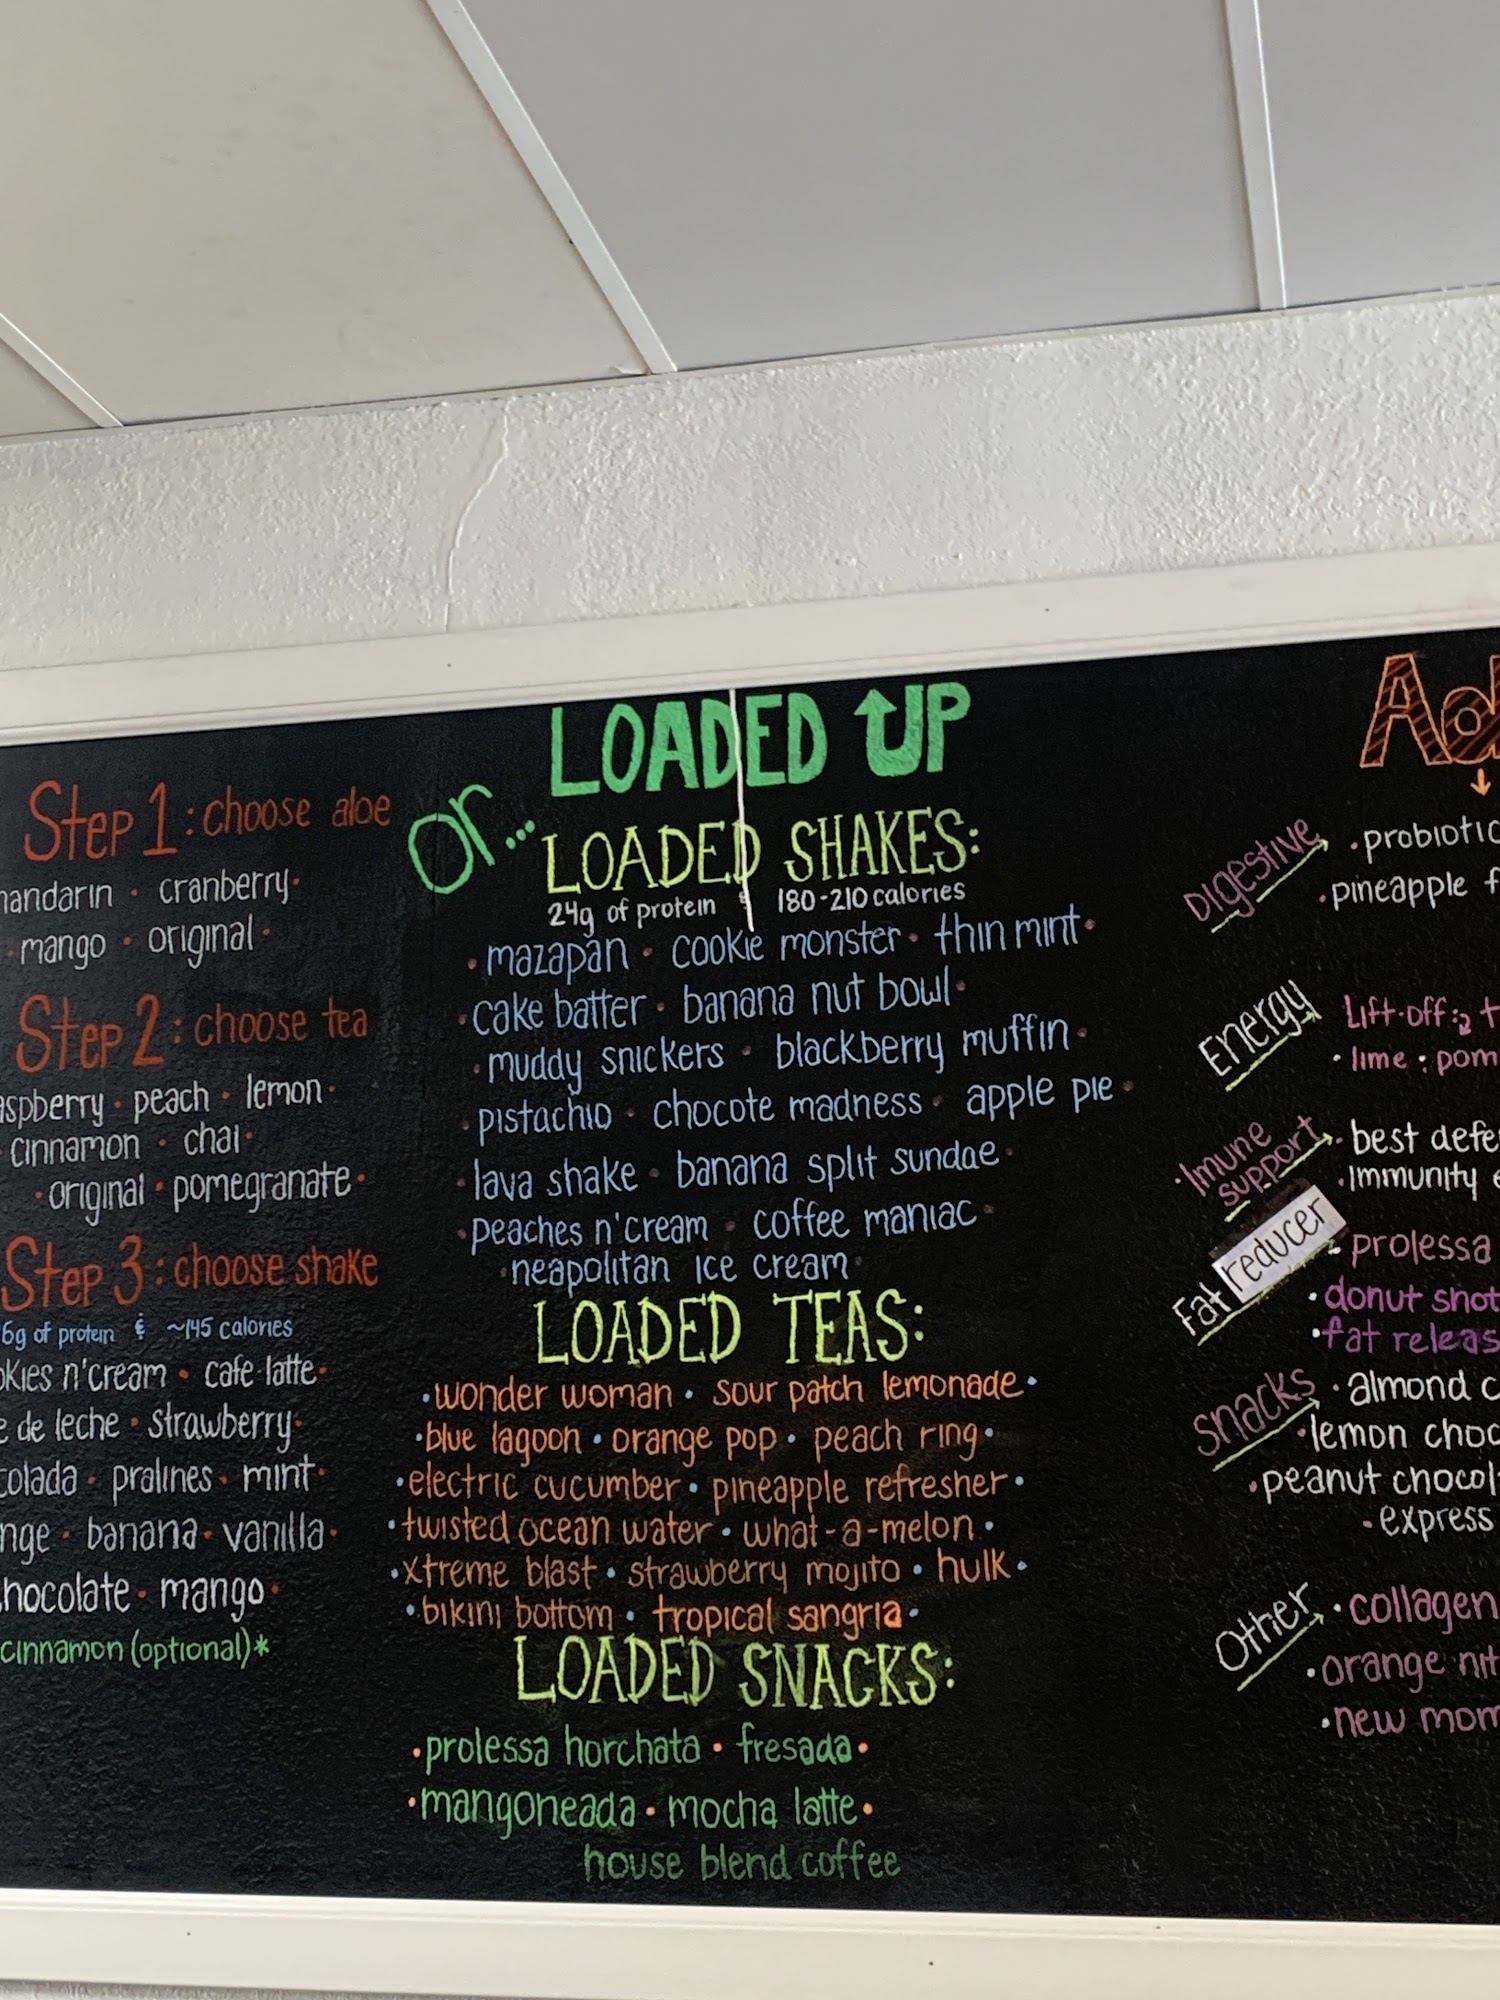 Step 1: choose aloe
mandarin · cranberry·
· mango · original ·
Step 2: choose tea
peach · lemon ·
· cinnamon · chai ·
· original · pomegranate ·
Step 3: choose shake
6g of protein & ~145 calories
n'cream · cafe latte ·
de leche · strawberry ·
colada · pralines · mint ·
· banana · vanilla ·
chocolate · mango ·
cinnamon (optional)*
or...
LOADED UP
LOADED SHAKES:
24g of protein & 180-210 calories
· mazapan · cookie monster · thin mint ·
· cake batter · banana nut bowl ·
· muddy snickers · blackberry muffin ·
· pistachio · chocote madness · apple pie ·
· lava shake · banana split sundae ·
· peaches n'cream · coffee maniac ·
· neapolitan ice cream ·
LOADED TEAS:
· wonder woman · sour patch lemonade ·
· blue lagoon · orange pop · peach ring ·
· electric cucumber · pineapple refresher ·
· twisted ocean water · what-a-melon ·
· xtreme blast · strawberry mojito · hulk ·
· bikini bottom · tropical sangria ·
LOADED SNACKS:
· prolessa horchata · fresada ·
· mangoneada · mocha latte ·
house blend coffee
Ad
Digestive
· probiotic
· pineapple f
Energy
Lift-off:
· lime : pom
· Imune support
· best defe
· immunity e
Fat reducer
· prolessa
· donut shot
· fat releas
snacks
· almond c
· lemon choc
· peanut chocol
· express
Other
· collagen
· orange nit
· new mom